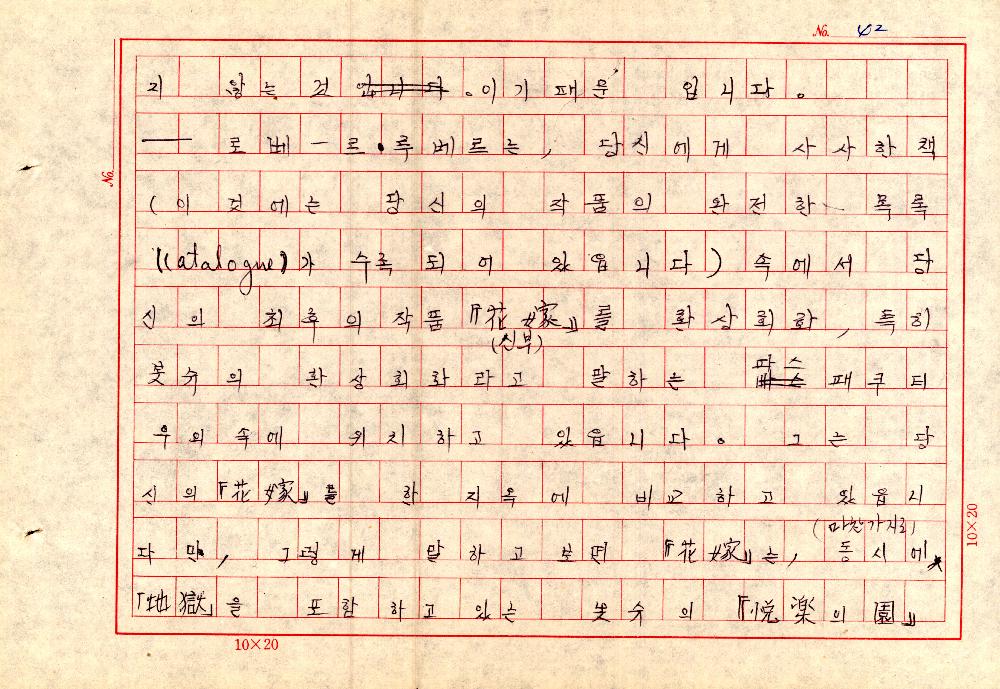 No. 42
지 않는 건 입니다 。이기 때문 입니다。
── 로베ー르・루베르는, 당신에게 사사한 책
(이 것에는 당신의 작품의 완전한 목록
(Catalogue)가 수록 되어 있읍니다) 속에서 당
신의 최후의 작품『花嫁』를 환상회화, 특히
(신부)
봇슈의 환상회화라고 말하는 파스 패쿠티
우의 속에 위치하고 있읍니다。 그는 당
신의『花嫁』를 한 지옥에 비교하고 있읍니
(마찬가지로)
다만, 그렇게 말하고 보면 『花嫁』는, 동시에
「地獄」을 포함하고 있는 봇슈의 『悦楽의 園』
No.
10×20
10×20